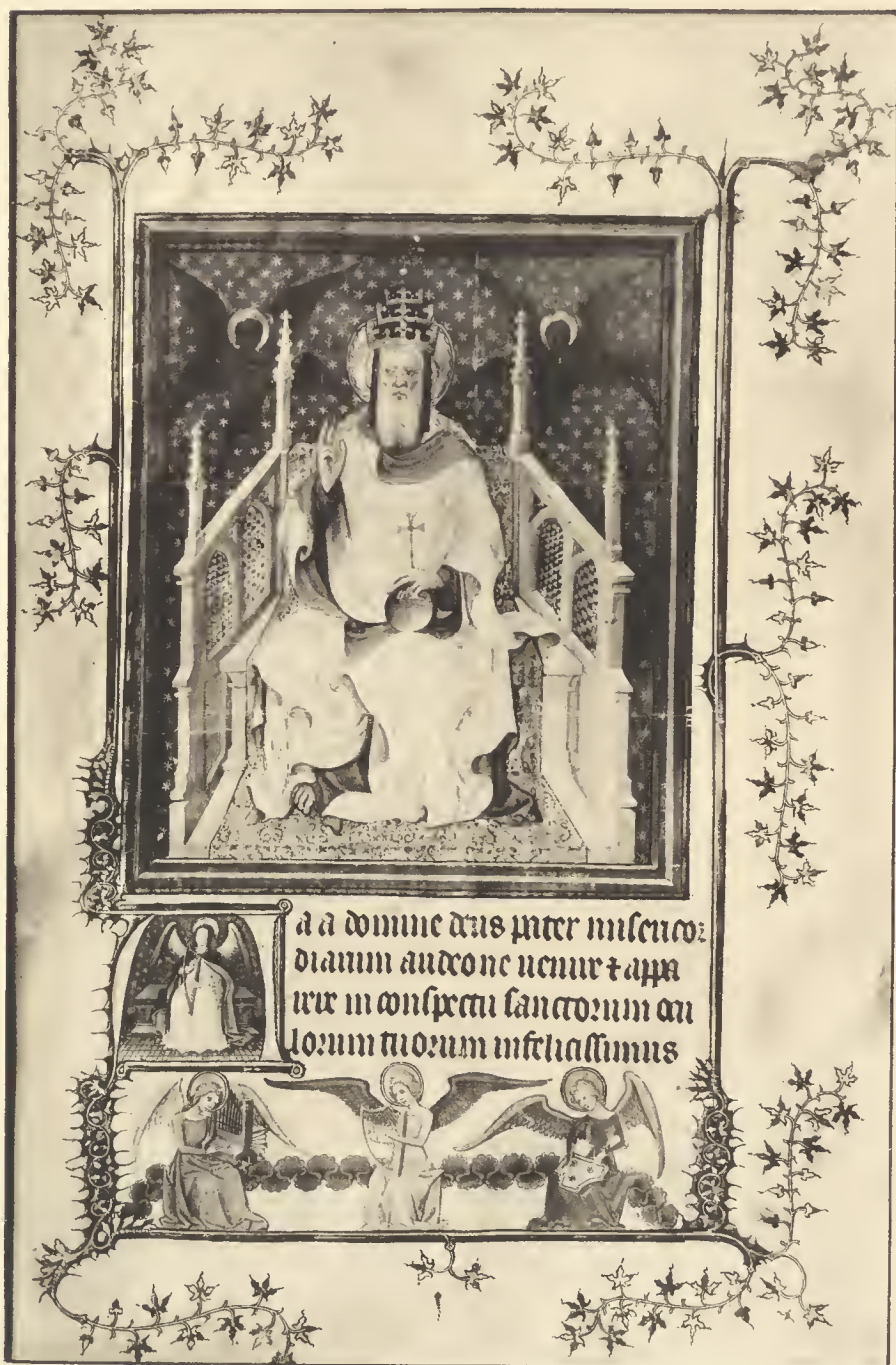 a a domine deus pater misericor
diarum audeo ne uenire ⁊ appa
rere in conspectu sanctorum ocu
lorum tuorum infelicissimus